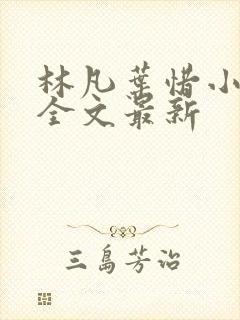 林凡葉惜小
全文最新
三島芳治